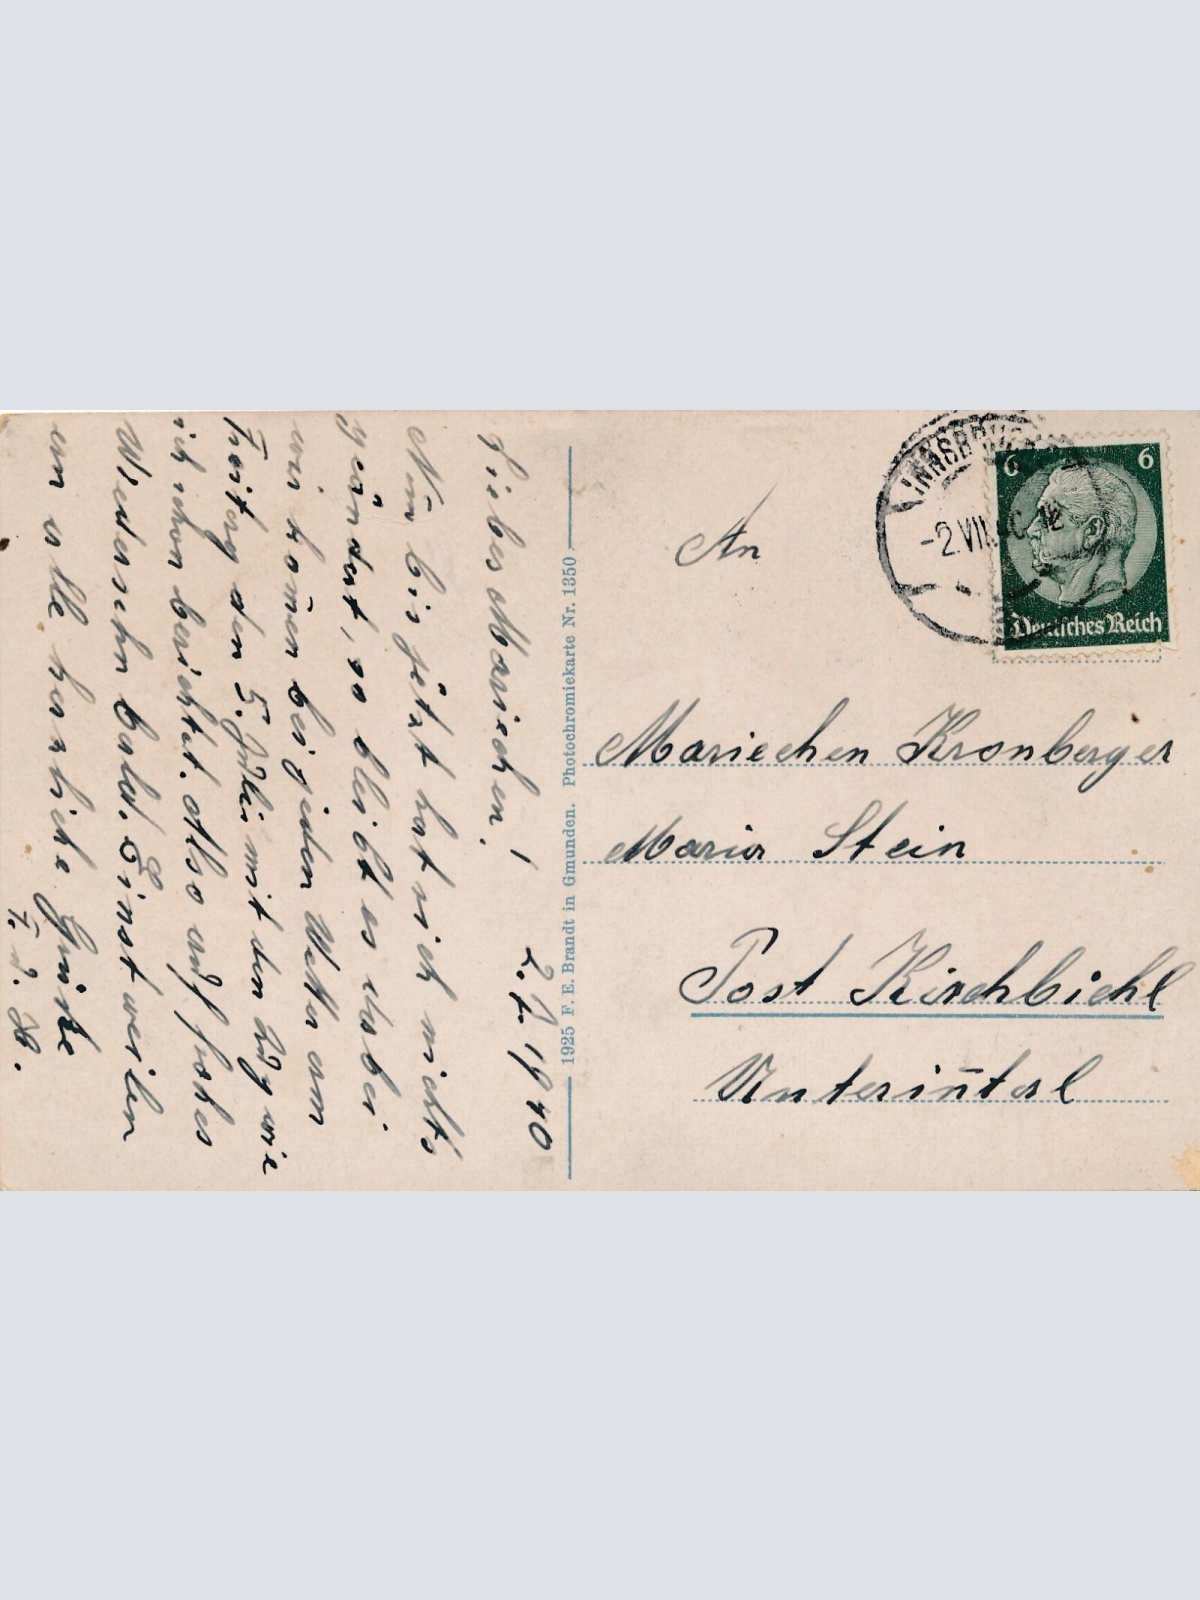 2.7.1940
Liebes Mariechen!
Nun bis jetzt hat sich nichts
geändert, so bleibt es dabei
wir kom̄en bei jeden Wetter am
Freitag den 5. Juli mit dem Zug wie
ich schon berichtet. Also auf frohes
Wiedersehn bald. Einstweilen
an alle herzliche Grüße
1925 F. E. Brandt in Gmunden. Photochromiekarte Nr. 1350
INNSBRUCK
-2.VII. 12
6 6
Deutsches Reich
An
Mariechen Kronberger
Maria Stein
Post Kirchbichl
Unterin̄tal